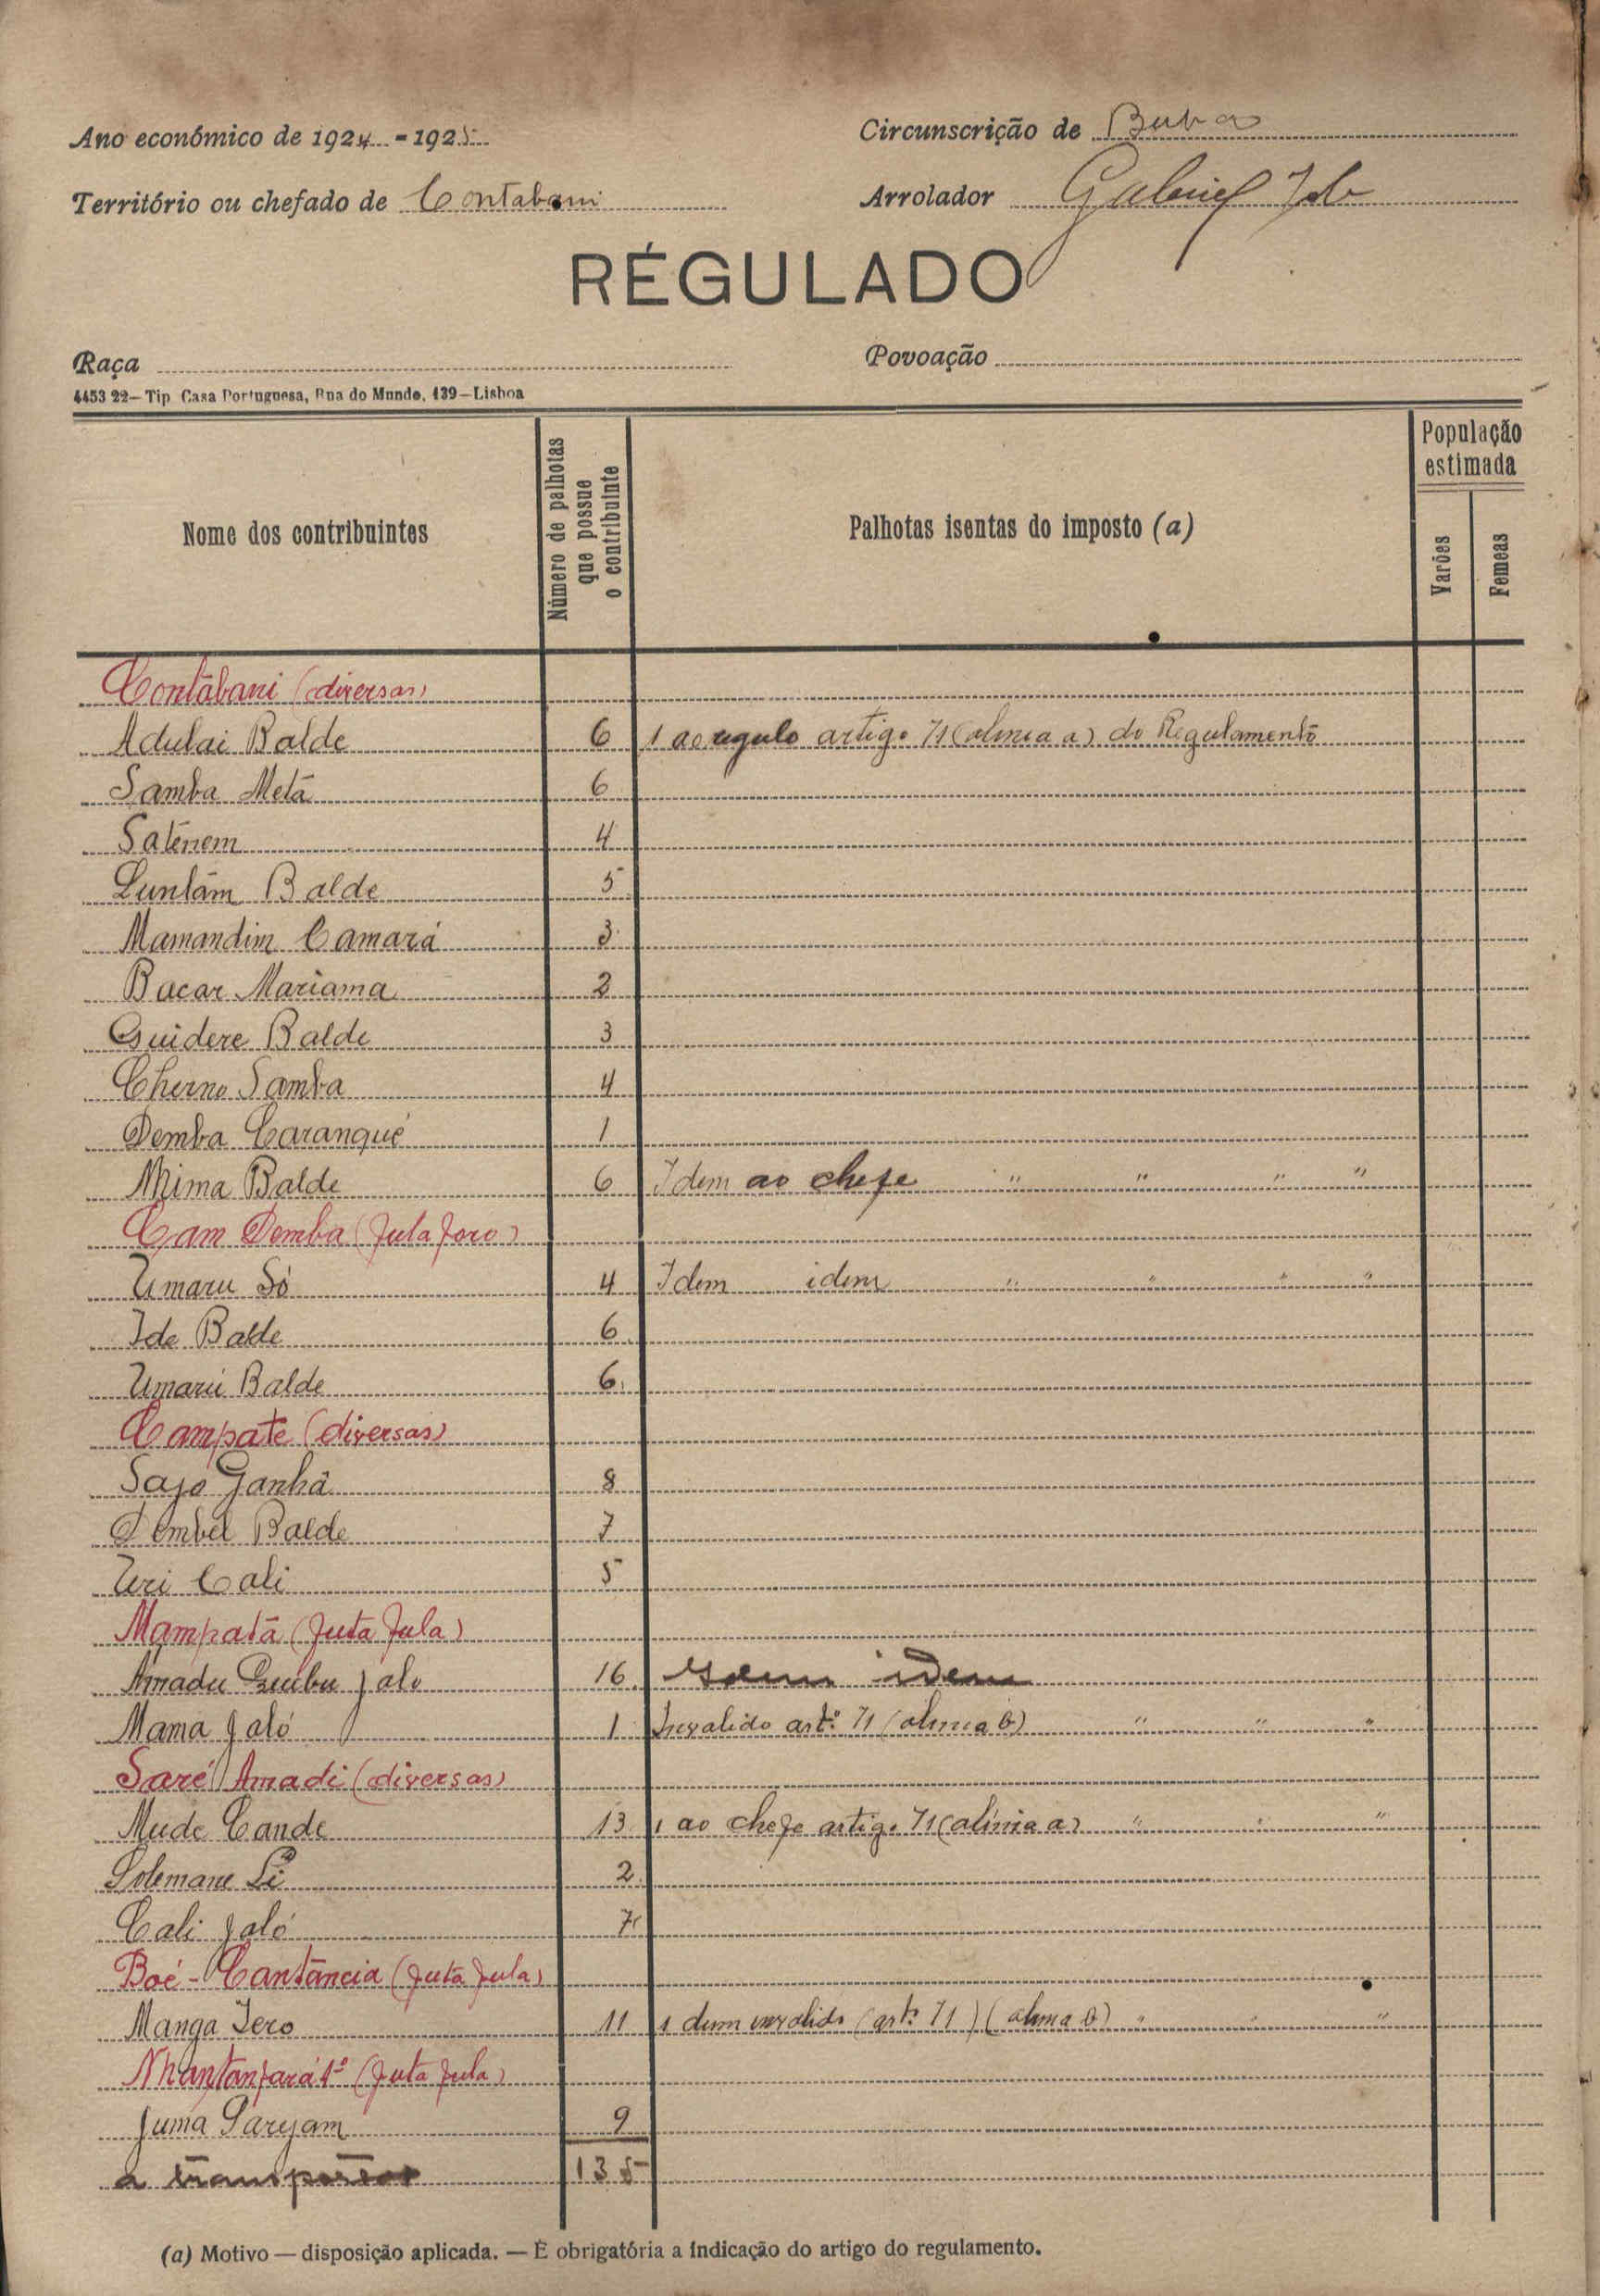 Ano económico de 1924 - 1925
Circunscrição de Buba
Território ou chefado de Contabani
Arrolador Gabriel
RÉGULADO
Raça
Povoação
4453 22—Tip Casa Portuguesa, Rua do Mundo, 139—Lisboa
Nome dos contribuintes
Número de palhotas que possue o contribuinte
Palhotas isentas do imposto (a)
População estimada
Varões
Femeas
Contabani (diversas)
Adulai Balde 6 1 ao regulo artigo 71 (alinea a) do Regulamento
Samba Metá 6
Saténem 4
Luntãm Balde 5
Mamandim Camará 3
Bacar Mariama 2
Guidere Balde 3
Cherno Samba 4
Demba Caranqué 1
Mima Balde 6 Idem ao chefe " " " "
Cam Demba (Fula foro)
Umaru Só 4 Idem idem " " " "
Ide Balde 6
Umarú Balde 6
Campate (diversas)
Sajo Ganhã 8
Dembel Balde 7
Uri Cali 5
Mampatá (Futa Fula)
Amadu Guibu Jalo 16 Idem idem
Mama Jaló 1 Invalido artº 71 (alinea b) " " "
Saré Amadi (diversas)
Mude Cande 13 1 ao chefe artigo 71 (alinia a) " " "
Solemane 2
Cali Jaló 7
Boé - Cantância (Futa Fula)
Manga Jero 11 1 dum invalido (artº 71) (alinea b) " " "
Nhantanfará 1º (Futa Fula)
Juma 9
a transportar 135
(a) Motivo — disposição aplicada. — É obrigatória a indicação do artigo do regulamento.